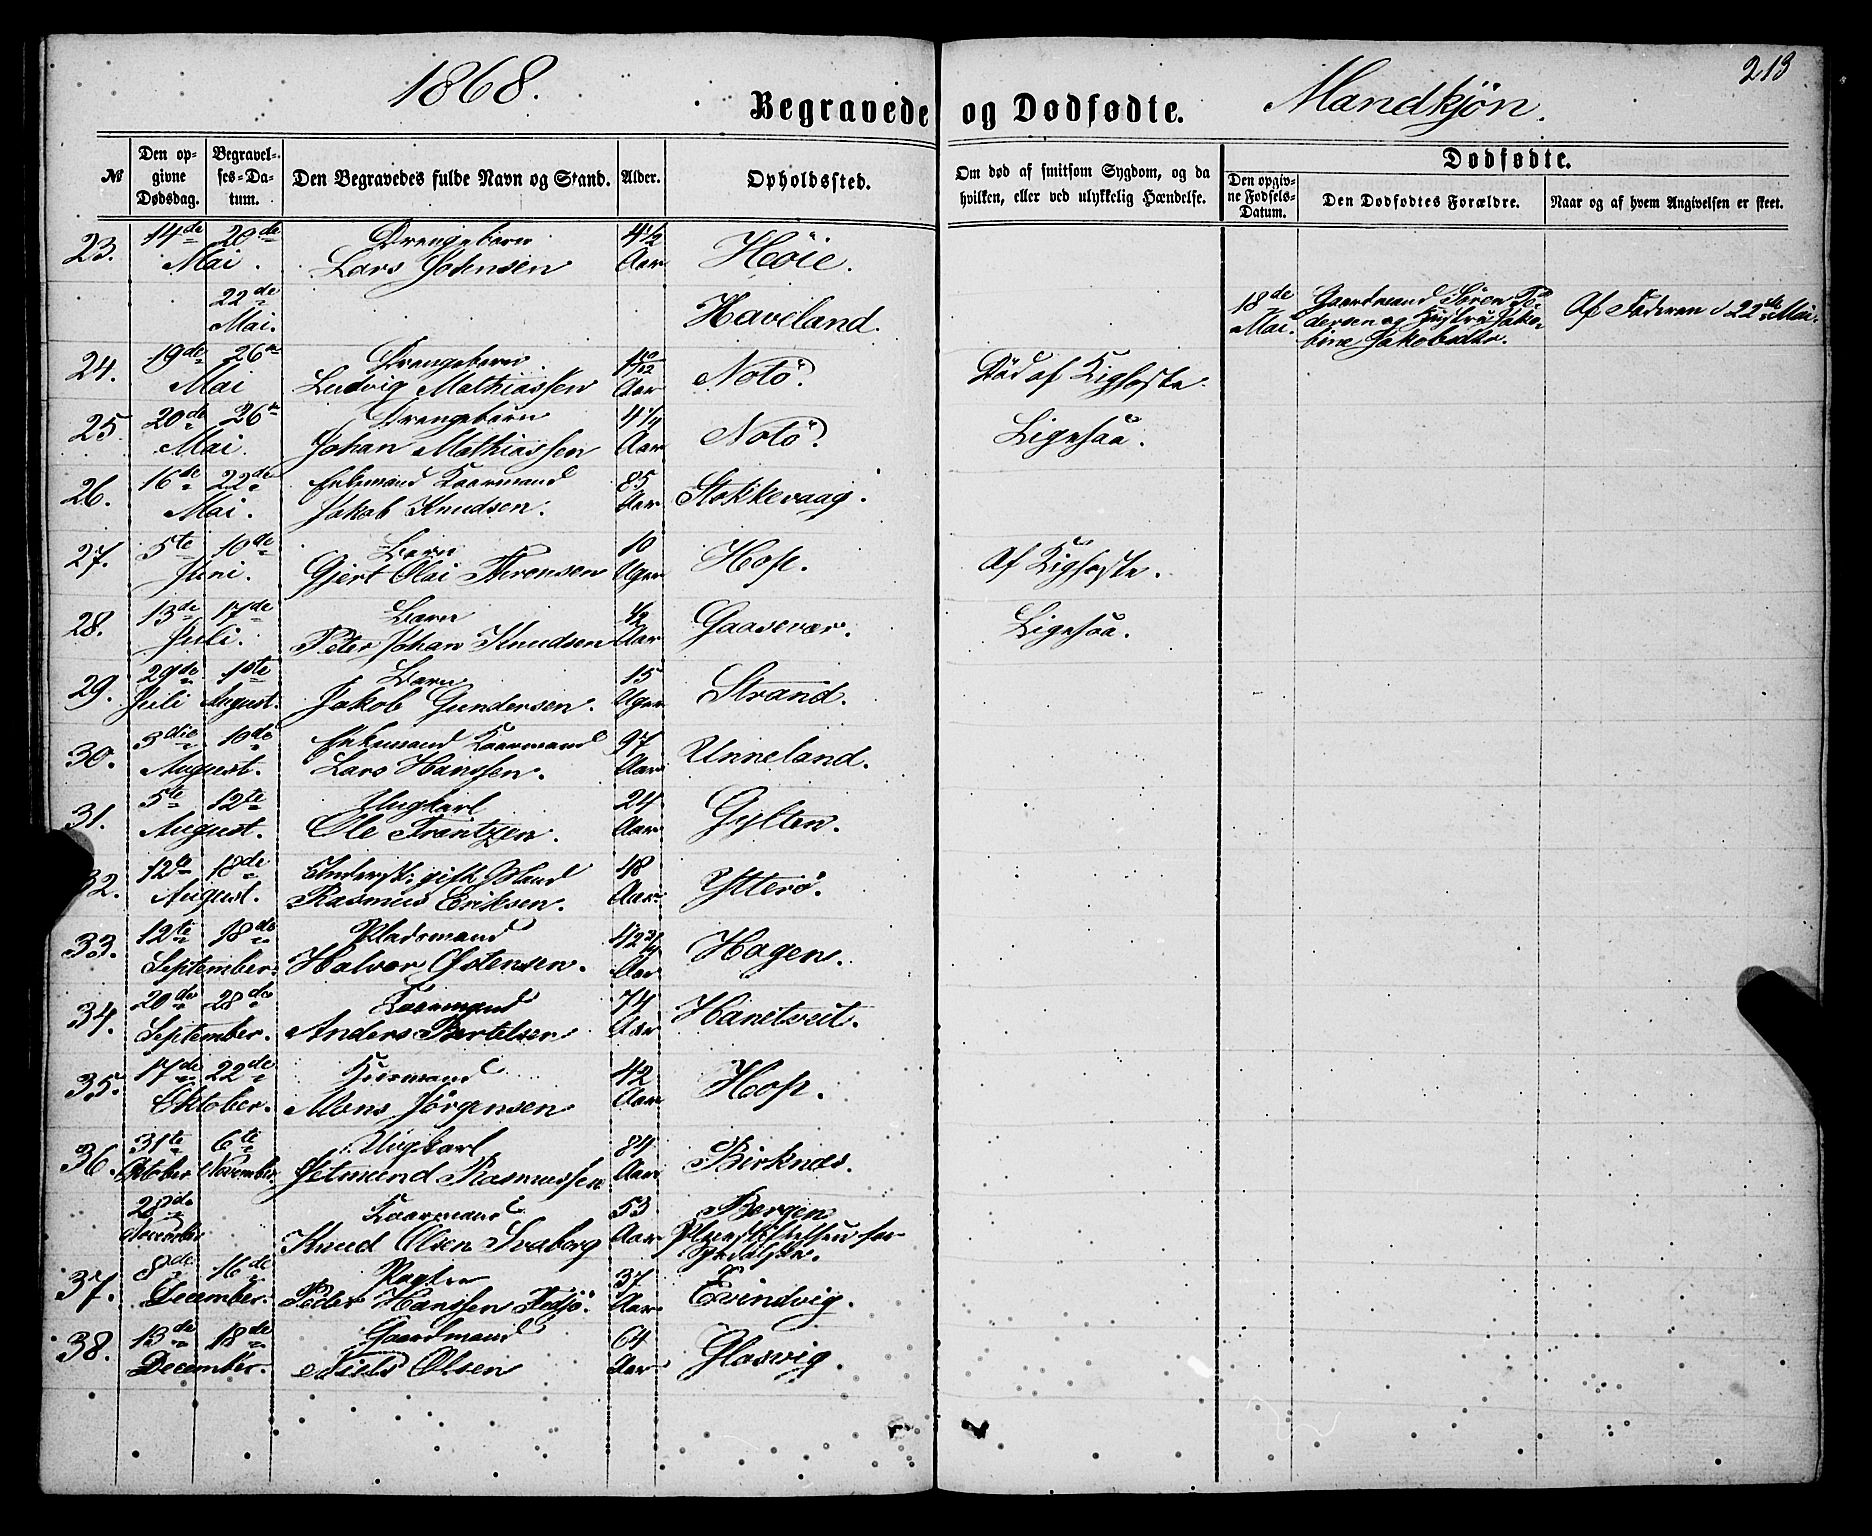 213
1868.
Begravede og Dødfødte. Mandkjøn.
№
Den opgivne Dødsdag.
Begravelses-Datum.
Den Begravedes fulde Navn og Stand.
Alder.
Opholdssted.
Om død af smitsom Sygdom, og da hvilken, eller ved ulykkelig Hændelse.
Dødfødte.
Den opgivne Fødsels-Datum.
Den Dødfødtes Forældre.
Naar og af hvem Angivelsen er skeet.
23. 14de 20de Drengebarn 4½
Mai. Lars Jensen Aar Høie.
22de Mai. Haveland. 18de Mai. Gaardmand Søren Pedersen og Hustru Jakobine Jakobsdtr. Af Faderen d 22de Mai.
24. 19de 26de Drengebarn 1 10/12
Mai Ludvig Mathiassen Aar Notö. Död af Kighoste.
25. 20de 26de Drengebarn 4¼
Mai. Johan Mathiassen Aar Notö. Ligesaa.
26. 16de 22de Enkemand Kaarmand 85
Mai. Jakob Knudsen. Aar Stokkevaag.
27. 5te 10de Barn 10
Juni. Gjert Olai Sörensen Uger Hop. Af Kighoste.
28. 13de 17de Barn ½
Juli. Peter Johan Knudsen Aar Gaasevær. Ligesaa.
29. 29de 1ste Barn 15
Juli August. Jakob Gundersen. Uger Strand.
30. 3die 10de Enkemand Kaarmand 97
August. Lars Hanssen. Aar Unneland.
31. 5te 12te Ungkarl 24
August. Ole Frantzen. Aar Gylten.
32. 12te 18de gift Mand 48
August. Rasmus Eriksen. Aar Ytterö.
33. 12te 18de Pladsmand 42¾
September. Halvor Östensen. Aar Hagen.
34. 20de 28de Kaarmand 74
September. Anders Bertelsen Aar Hanetveit.
35. 17de 22de Huusmand 42
Oktober. Mons Jörgensen Aar Hop.
36. 31te 6te Ungkarl 84
Oktober November. Jetmund Rasmussen Aar Birknæs.
28de Kaarmand 53 Bergen
November Knud Olsen Svaborg Aar Pleiestiftelsen for Spedalske.
37. 8de 16de 37
December. Peder Hanssen Indsjö. Aar Evindvig.
38. 13de 18de Gaardmand 64
December. Niels Olsen Aar Glosvig.